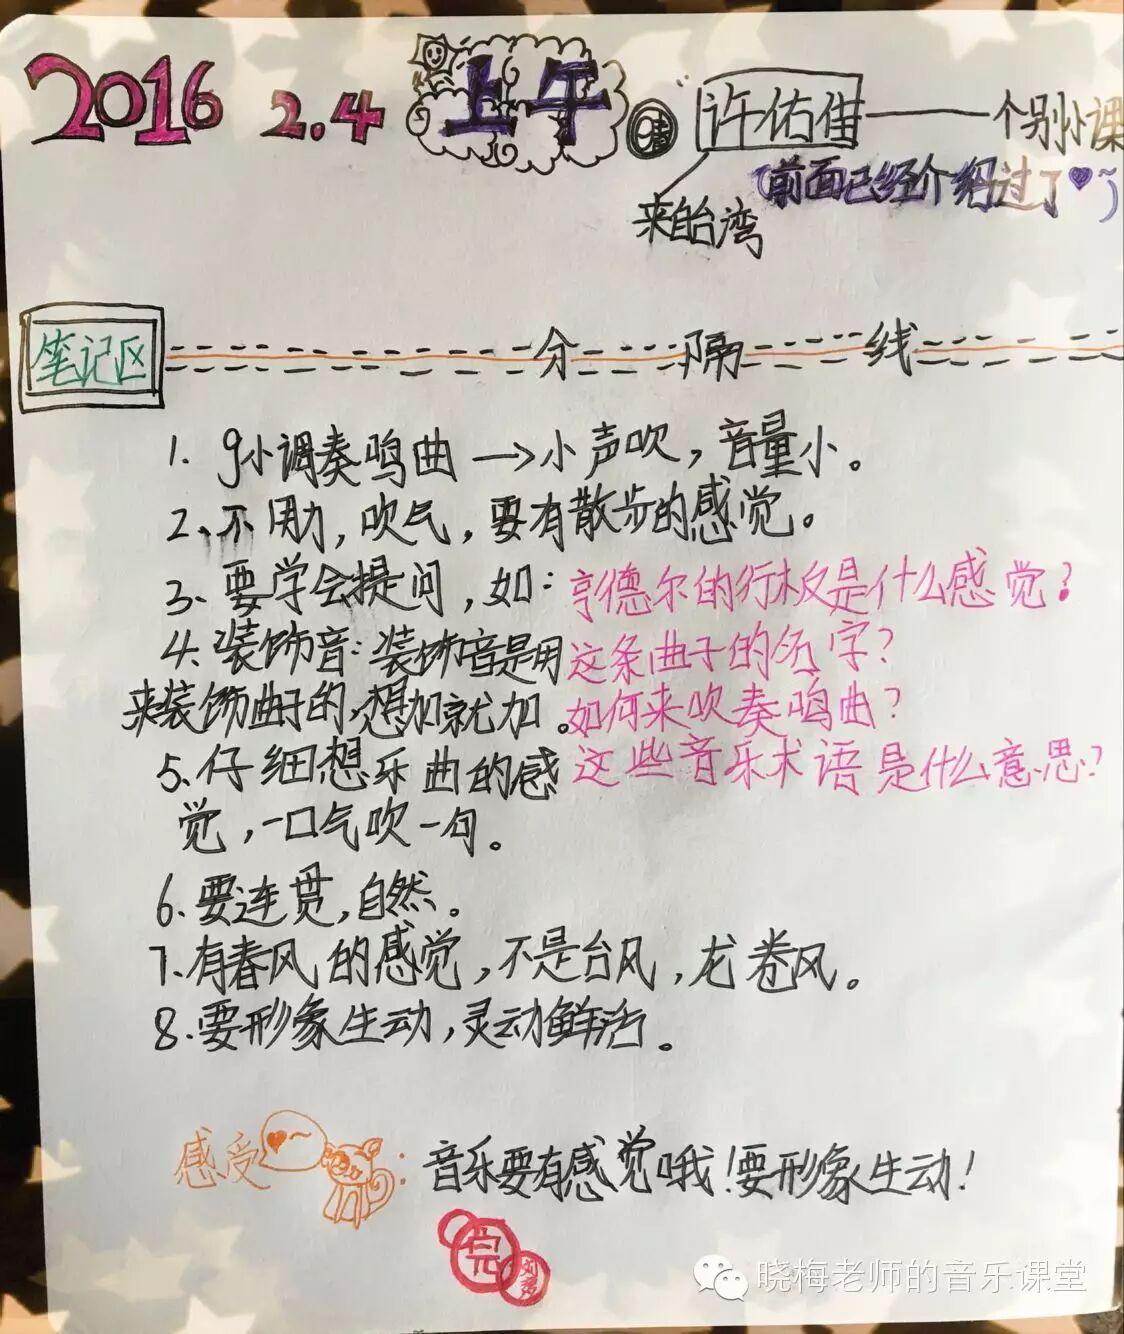 2016 2.4 上午 晴 许佑佳——个别小课
(前面已经介绍过了♥~)
来自台湾
笔记区 分隔线
1. g小调奏鸣曲→小声吹，音量小。
2、不用力，吹气，要有散步的感觉。
3、要学会提问，如：亨德尔的行板是什么感觉？
这条曲子的名字？
如何来吹奏鸣曲？
这些音乐术语是什么意思？
4、装饰音：装饰音是用
来装饰曲子的，想加就加。
5、仔细想乐曲的感
觉，一口气吹一句。
6、要连贯，自然。
7、有春风的感觉，不是台风，龙卷风。
8、要形象生动，灵动鲜活。
感受：音乐要有感觉哦！要形象生动！
完
晓梅老师的音乐课堂